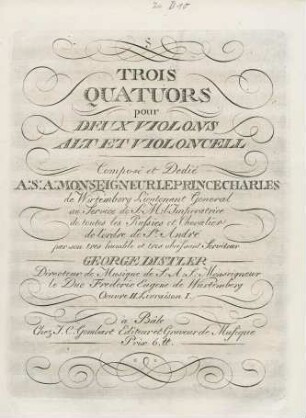 TROIS
QUATUORS
pour
DEUX VIOLONS
ALT ET VIOLONCELL
Composé et Dedié
A.S.A. MONSEIGNEUR LE PRINCE CHARLES
de Wirtemberg Lieutenant General
au Service de S. M. l'Imperatrice
de toutes les Russies et Chevalier
de l'ordre de St. André
par son tres humble et tres obeissant Serviteur
GEORGE DISTLER
Directeur de Musique de S A S Monseigneur
le Duc Frederic Eugene de Würtemberg
Oeuvre II. Livraison I.
à Bâle
Chez J. C. Gombart Editeur et Graveur de Musique
Prix 6.